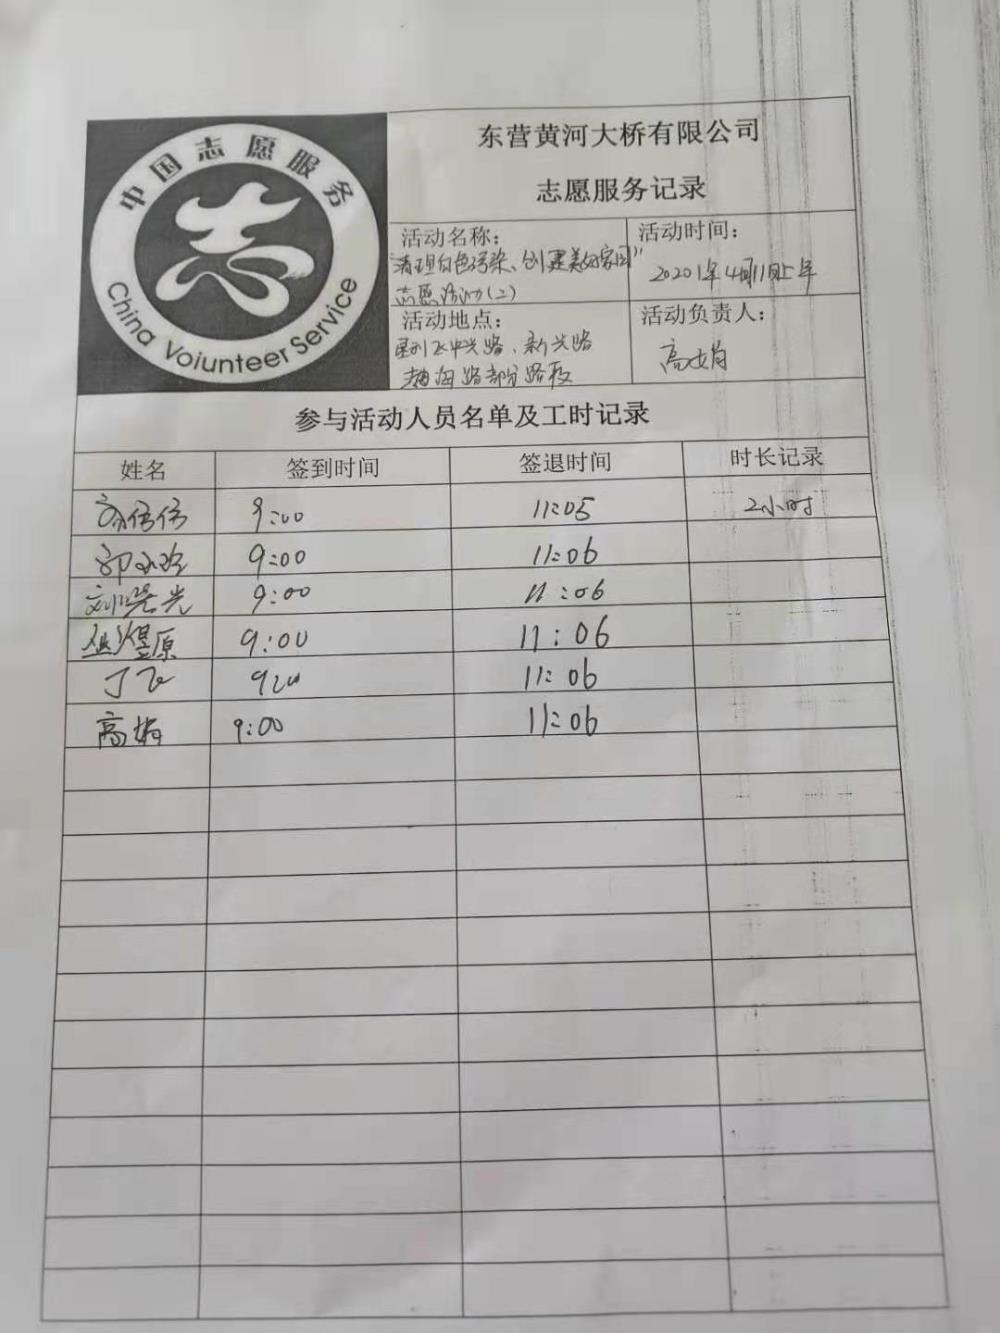 中国志愿服务
China Voiunteer Service
东营黄河大桥有限公司
志愿服务记录
活动名称：
"清理白色污染、创建美好家园"
志愿活动(二)
活动时间：
20201年4月11日上午
活动地点：
垦利区中兴路、新兴路
渤海路部分路段
活动负责人：
高娟
参与活动人员名单及工时记录
姓名 签到时间 签退时间 时长记录
倩倩 9:00 11:05 2小时
郭 9:00 11:06
刘 光 9:00 11:06
原 9:00 11:06
丁飞 9:00 11:06
高娟 9:00 11:06